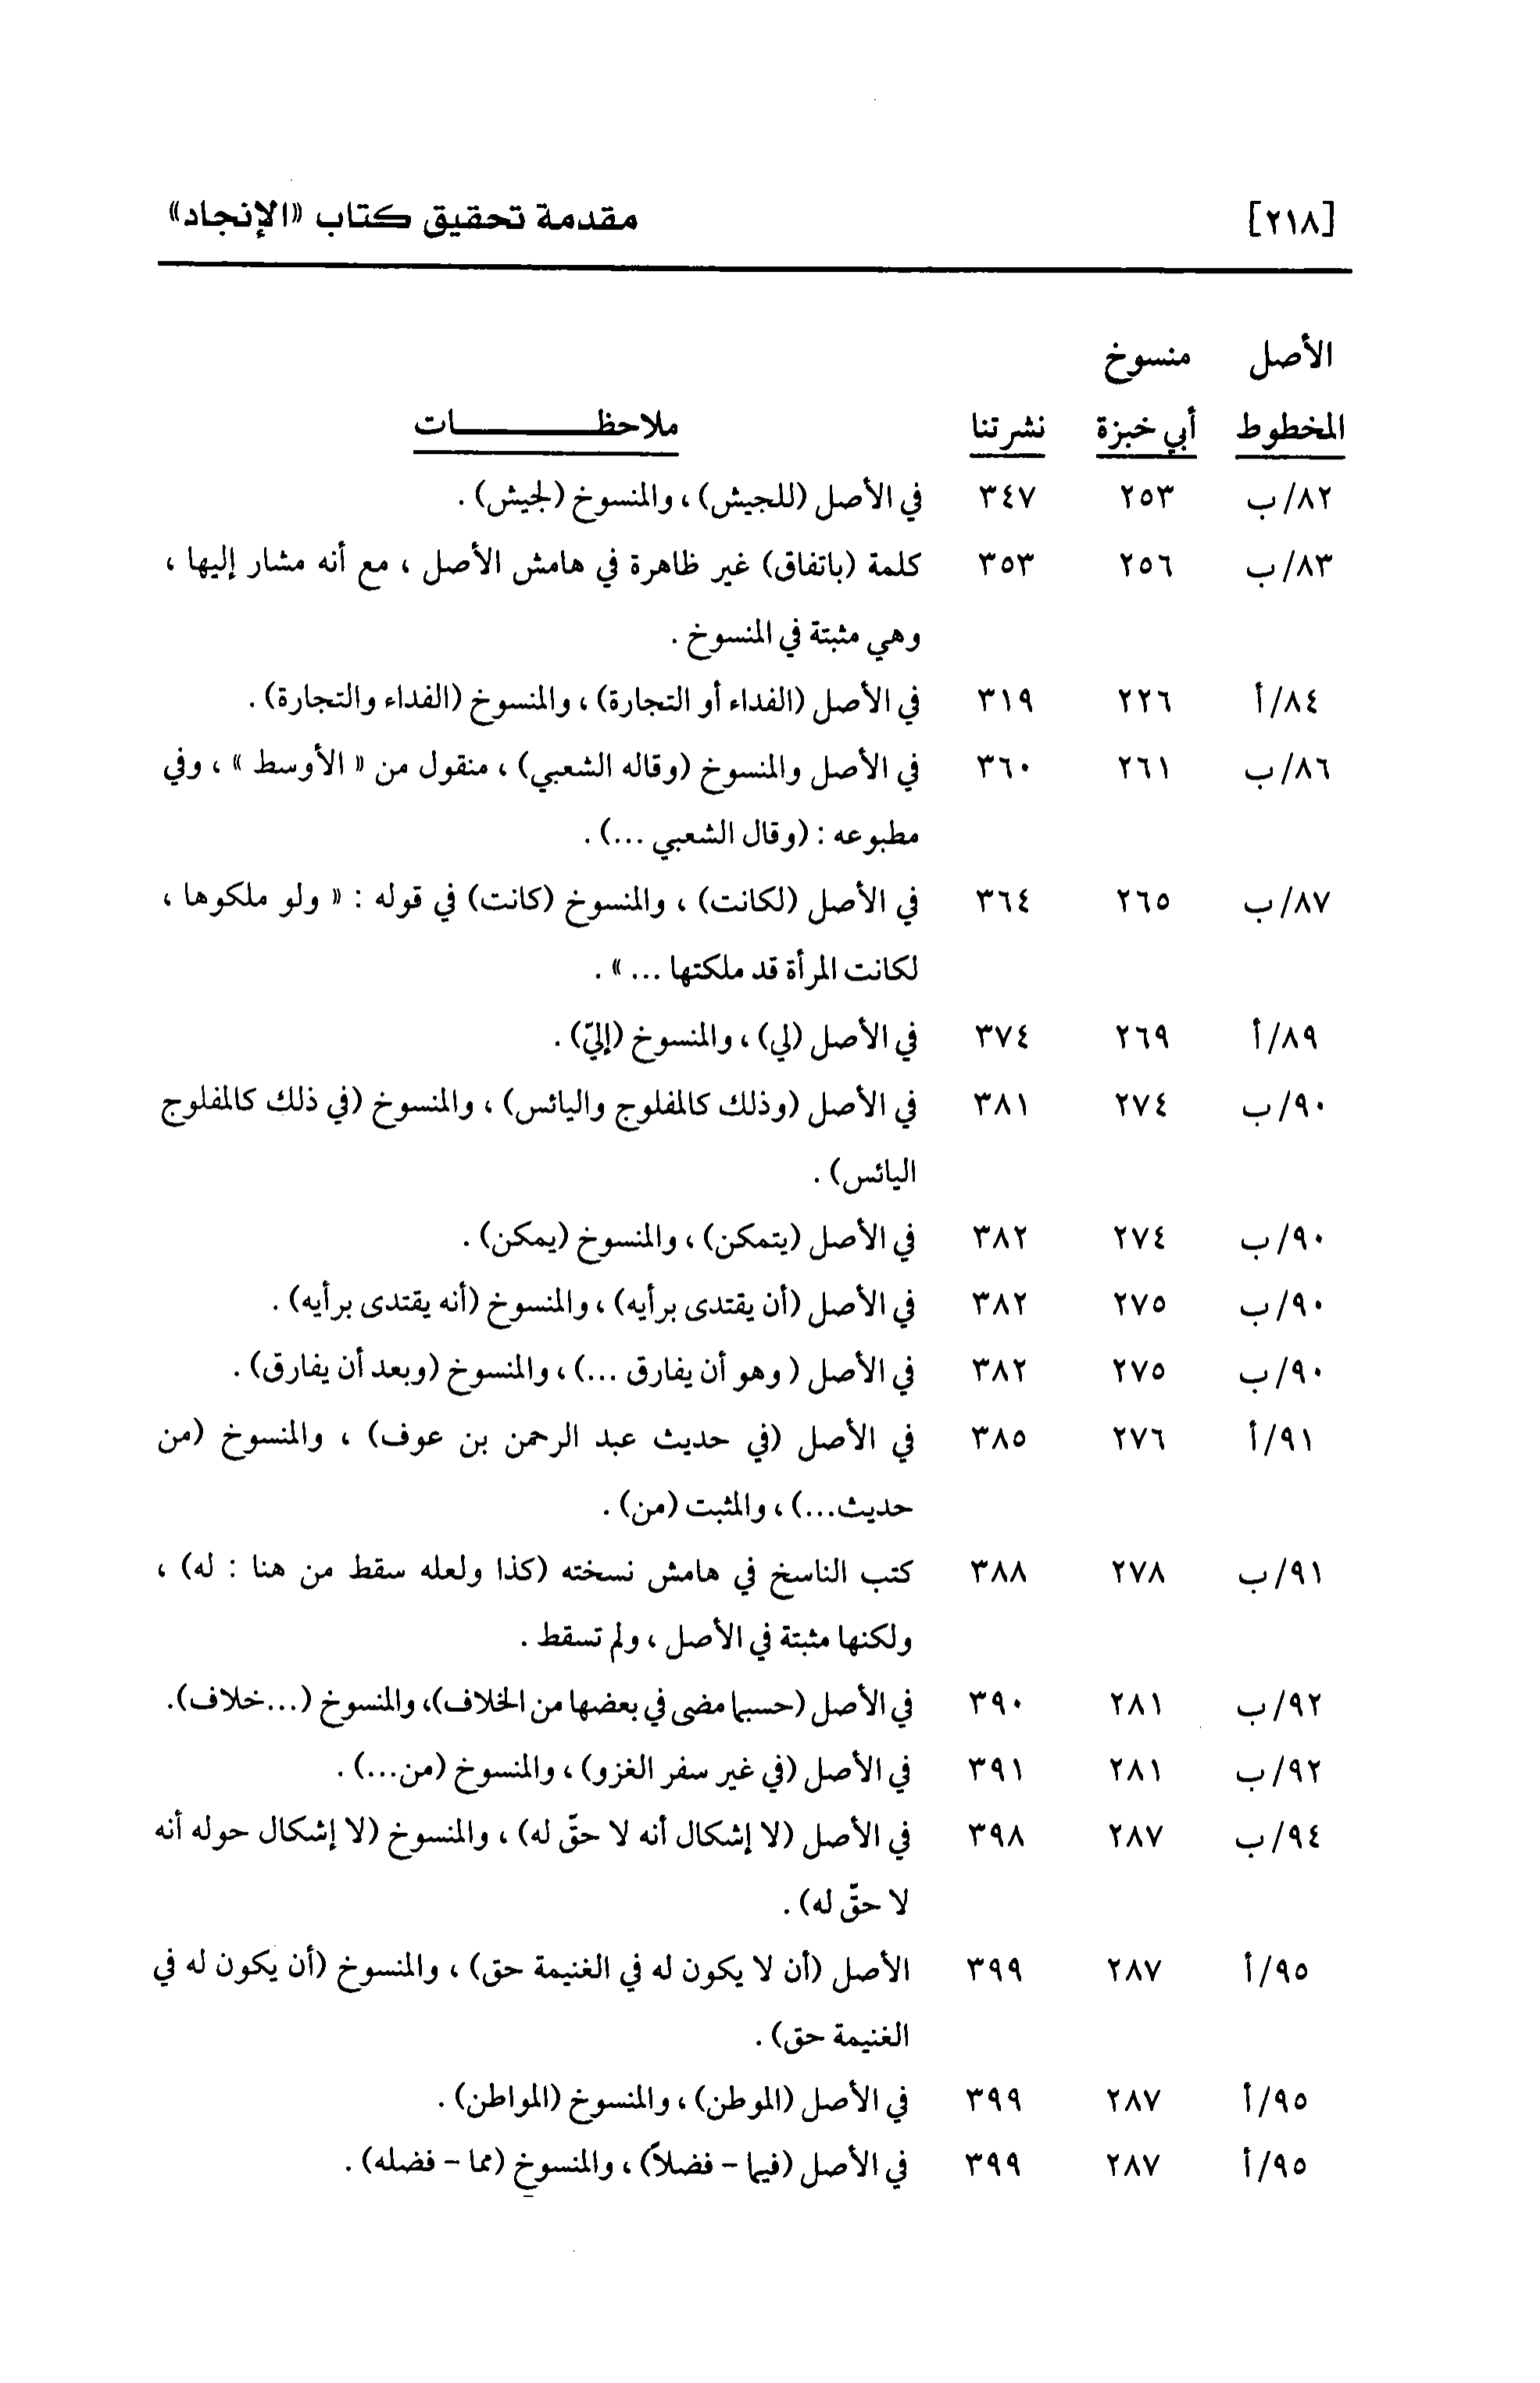 [٢١٨] مقدمة تحقيق كتاب «الإنجاد»
الأصل منسوخ
المخطوط أبي خبزة نشرتنا ملاحظـــــــــات
٨٢/ب ٢٥٣ ٣٤٧ في الأصل (للجيش) ، والمنسوخ (لجيش) .
٨٣/ب ٢٥٦ ٣٥٣ كلمة (باتفاق) غير ظاهرة في هامش الأصل ، مع أنه مشار إليها ،
وهي مثبتة في المنسوخ .
٨٤/أ ٢٢٦ ٣١٩ في الأصل (الفداء أو التجارة) ، والمنسوخ (الفداء والتجارة) .
٨٦/ب ٢٦١ ٣٦٠ في الأصل والمنسوخ (وقاله الشعبي) ، منقول من « الأوسط » ، وفي
مطبوعه : (وقال الشعبي ...) .
٨٧/ب ٢٦٥ ٣٦٤ في الأصل (لكانت) ، والمنسوخ (كانت) في قوله : « ولو ملكوها ،
لكانت المرأة قد ملكتها ... » .
٨٩/أ ٢٦٩ ٣٧٤ في الأصل (لي) ، والمنسوخ (إليّ) .
٩٠/ب ٢٧٤ ٣٨١ في الأصل (وذلك كالمفلوج واليائس) ، والمنسوخ (في ذلك كالمفلوج
اليائس) .
٩٠/ب ٢٧٤ ٣٨٢ في الأصل (يتمكن) ، والمنسوخ (يمكن) .
٩٠/ب ٢٧٥ ٣٨٢ في الأصل (أن يقتدى برأيه) ، والمنسوخ (أنه يقتدى برأيه) .
٩٠/ب ٢٧٥ ٣٨٢ في الأصل ( وهو أن يفارق ...) ، والمنسوخ (وبعد أن يفارق) .
٩١/أ ٢٧٦ ٣٨٥ في الأصل (في حديث عبد الرحمن بن عوف) ، والمنسوخ (من
حديث...) ، والمثبت (من) .
٩١/ب ٢٧٨ ٣٨٨ كتب الناسخ في هامش نسخته (كذا ولعله سقط من هنا : له) ،
ولكنها مثبتة في الأصل ، ولم تسقط .
٩٢/ب ٢٨١ ٣٩٠ في الأصل (حسبما مضى في بعضها من الخلاف)، والمنسوخ (...خلاف).
٩٢/ب ٢٨١ ٣٩١ في الأصل (في غير سفر الغزو) ، والمنسوخ (من...) .
٩٤/ب ٢٨٧ ٣٩٨ في الأصل (لا إشكال أنه لا حقّ له) ، والمنسوخ (لا إشكال حوله أنه
لا حقّ له) .
٩٥/أ ٢٨٧ ٣٩٩ الأصل (أن لا يكون له في الغنيمة حق) ، والمنسوخ (أن يكون له في
الغنيمة حق) .
٩٥/أ ٢٨٧ ٣٩٩ في الأصل (الموطن) ، والمنسوخ (المواطن) .
٩٥/أ ٢٨٧ ٣٩٩ في الأصل (فيما - فضلاً) ، والمنسوخ (مما - فضله) .